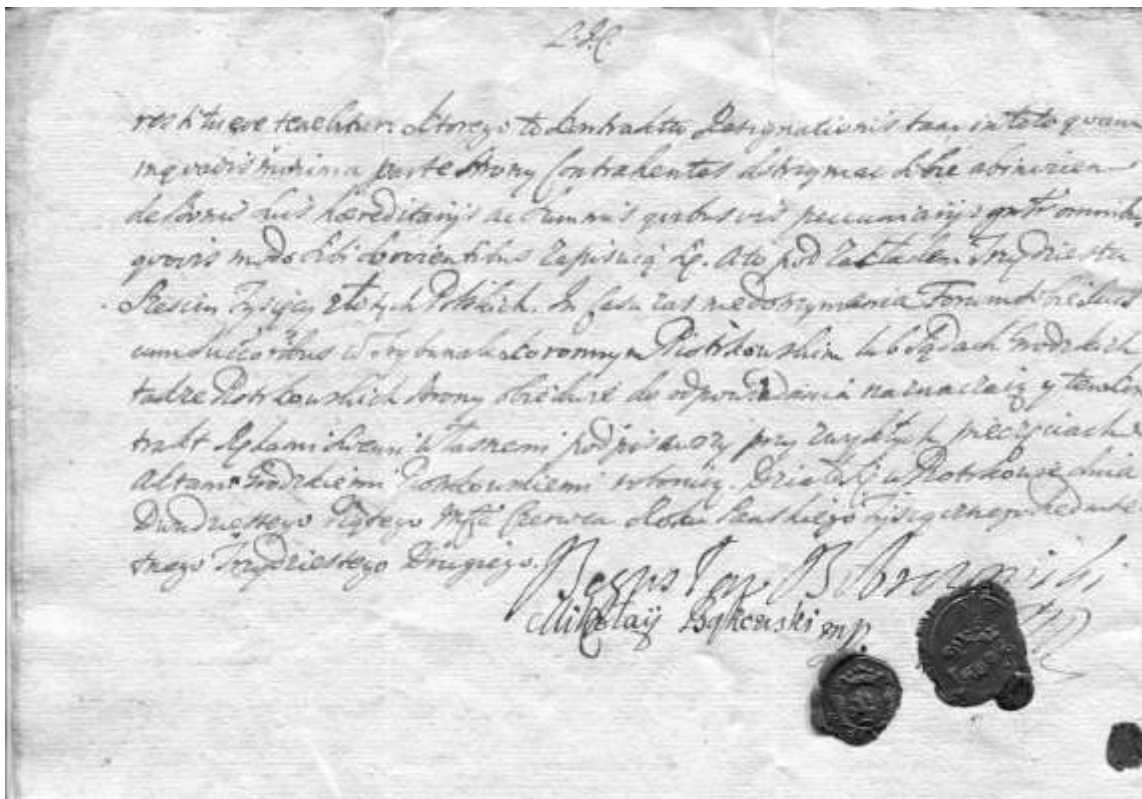 restituere tenebitur. Ktorego to Kontraktu Resignationis tam in toto quam
in quavis minima parte strony Contrahentes dotrzymać sobie
de bonis suis haereditarijs ac summis quibusvis pecuniarijs omnibus
quovis modo sibi zapisuią &c. A to pod zakładem Trzydziestu
Sześciu Tysięcy złotych Polskich. In casu zaś niedotrzymania Forum sobie suis
cum Succoribus w Trybunale Koronnym Piotrkowskim lub Sądach Grodzkich
także Piotrkowskich strony obiedwie do odpowiadania naznaczaią y ten Kon
trakt Rękami swemi własnemi podpisawszy przy zwykłych pieczęciach
Aktami Grodzkiemi Piotrkowskiemi roboruią. Działo się w Piotrkowie dnia
Dwudziestego Piątego Czerwca Roku Pańskiego Tysiącznego Siedmse
tnego Trzydziestego Drugiego.
Mikołaÿ Bąkowski mp.